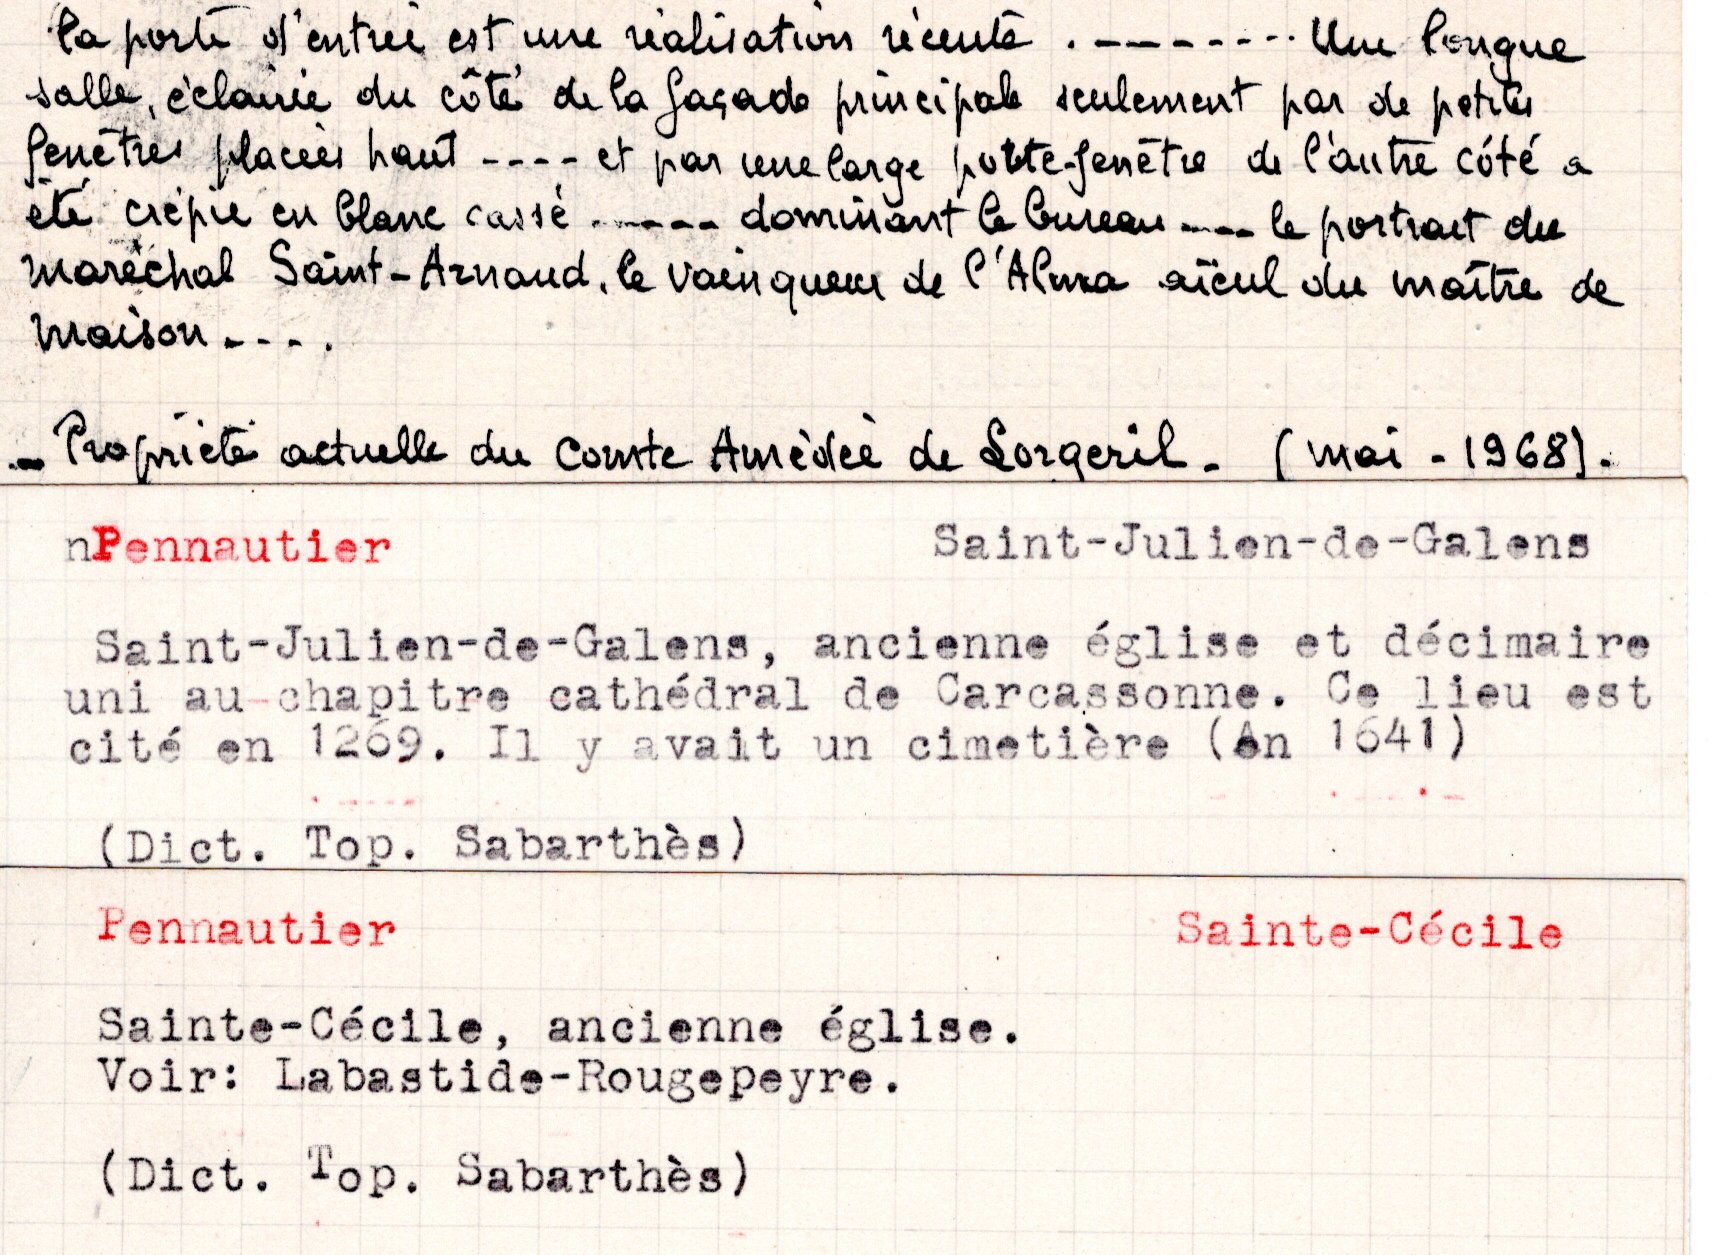 la porte d'entrée est une réalisation récente . -------- Une longue
salle, éclairée du côté de la façade principale seulement par de petites
fenêtres placées haut ---- et par une large porte-fenêtre de l'autre côté a
été crépie en blanc cassé ------ dominant le bureau ---- le portrait du
maréchal Saint-Arnaud, le vainqueur de l'Alma aïeul du maître de
maison ---.
- Propriété actuelle du Comte Amédée de Lorgeril - (mai - 1968).
nPennautier Saint-Julien-de-Galens
Saint-Julien-de-Galens, ancienne église et décimaire
uni au chapitre cathédral de Carcassonne. Ce lieu est
cité en 1269. Il y avait un cimetière (An 1641)
(Dict. Top. Sabarthès)
Pennautier Sainte-Cécile
Sainte-Cécile, ancienne église.
Voir: Labastide-Rougepeyre.
(Dict. Top. Sabarthès)